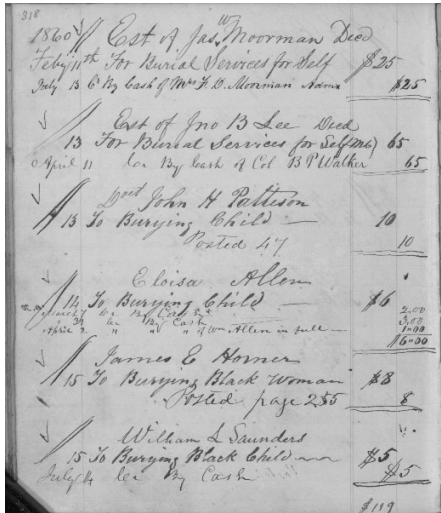 318
1860 Est of Jas W Moorman Decd
Feby 11th For Burial Services for Self $25
July 13 Cr By Cash of Mrs F. D. Moorman Admx $25
Est of Jno B Lee Decd
13 For Burial Services for Self 65
April 11 Cr By Cash of Col B P Walker 65
Doct John H Patteson
13 To Burying Child — 10
Posted 47 10
Eloisa Allen
14 To Burying Child — $6
March 7 Cr By Cash 2.00
By Cash 3.00
April 2 " " of Wm Allen in full — 1.00
$6.00
James E Horner
15 To Burying Black Woman $8
Posted page 255 8
William L Saunders
15 To Burying Black Child $5
July 14 Cr By Cash $5
$119